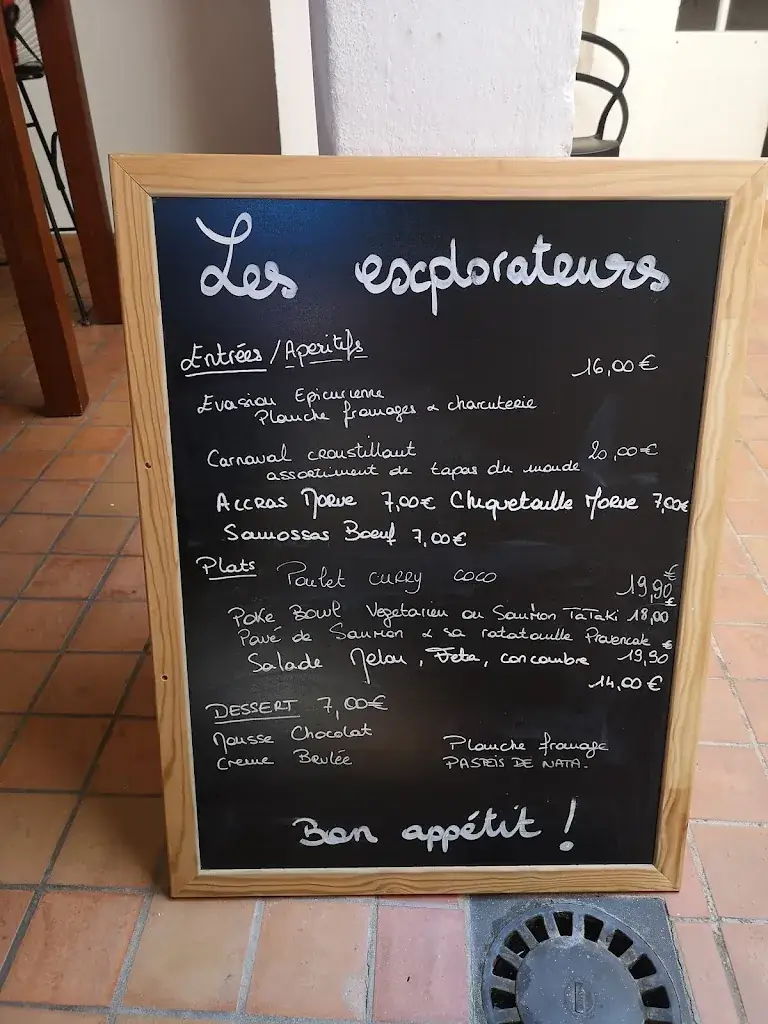 Les explorateurs
Entrées / Aperitifs
16,00 €
Evasion Epicurienne
Planche fromages & charcuterie
Carnaval croustillant 20,00 €
assortiment de tapas du monde
Accras Morue 7,00€ Chiquetaille Morue 7,00€
Samossas Boeuf 7,00€
Plats Poulet curry coco 19,90 €
Poke Bowl Vegetarien ou Saumon Tataki 18,00 €
Pavé de Saumon & sa ratatouille Provencale €
Salade Melon, Feta, concombre 19,90
14,00 €
DESSERT 7,00€
Mousse Chocolat
Creme Brulée
Planche fromage
PASTEIS DE NATA.
Bon appétit !